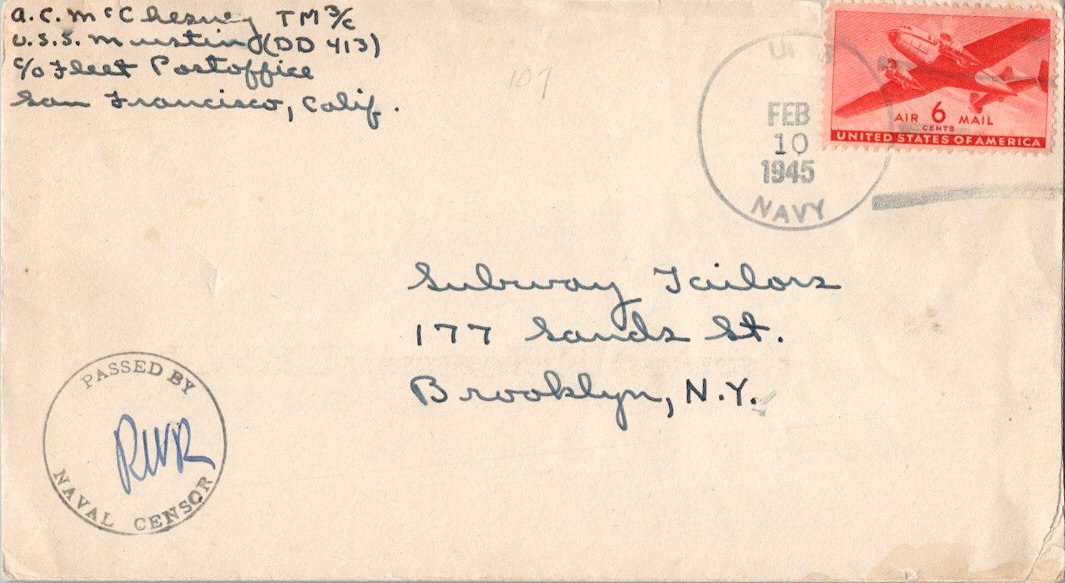 A.C. McChesney TM 3/c
U.S.S. Mustin (DD 413)
c/o Fleet Postoffice
San Francisco, Calif.
107
U.S.
FEB
10
1945
NAVY
AIR 6 MAIL
CENTS
UNITED STATES OF AMERICA
Subway Tailors
177 Sands St.
Brooklyn, N.Y.
PASSED BY
RWR
NAVAL CENSOR